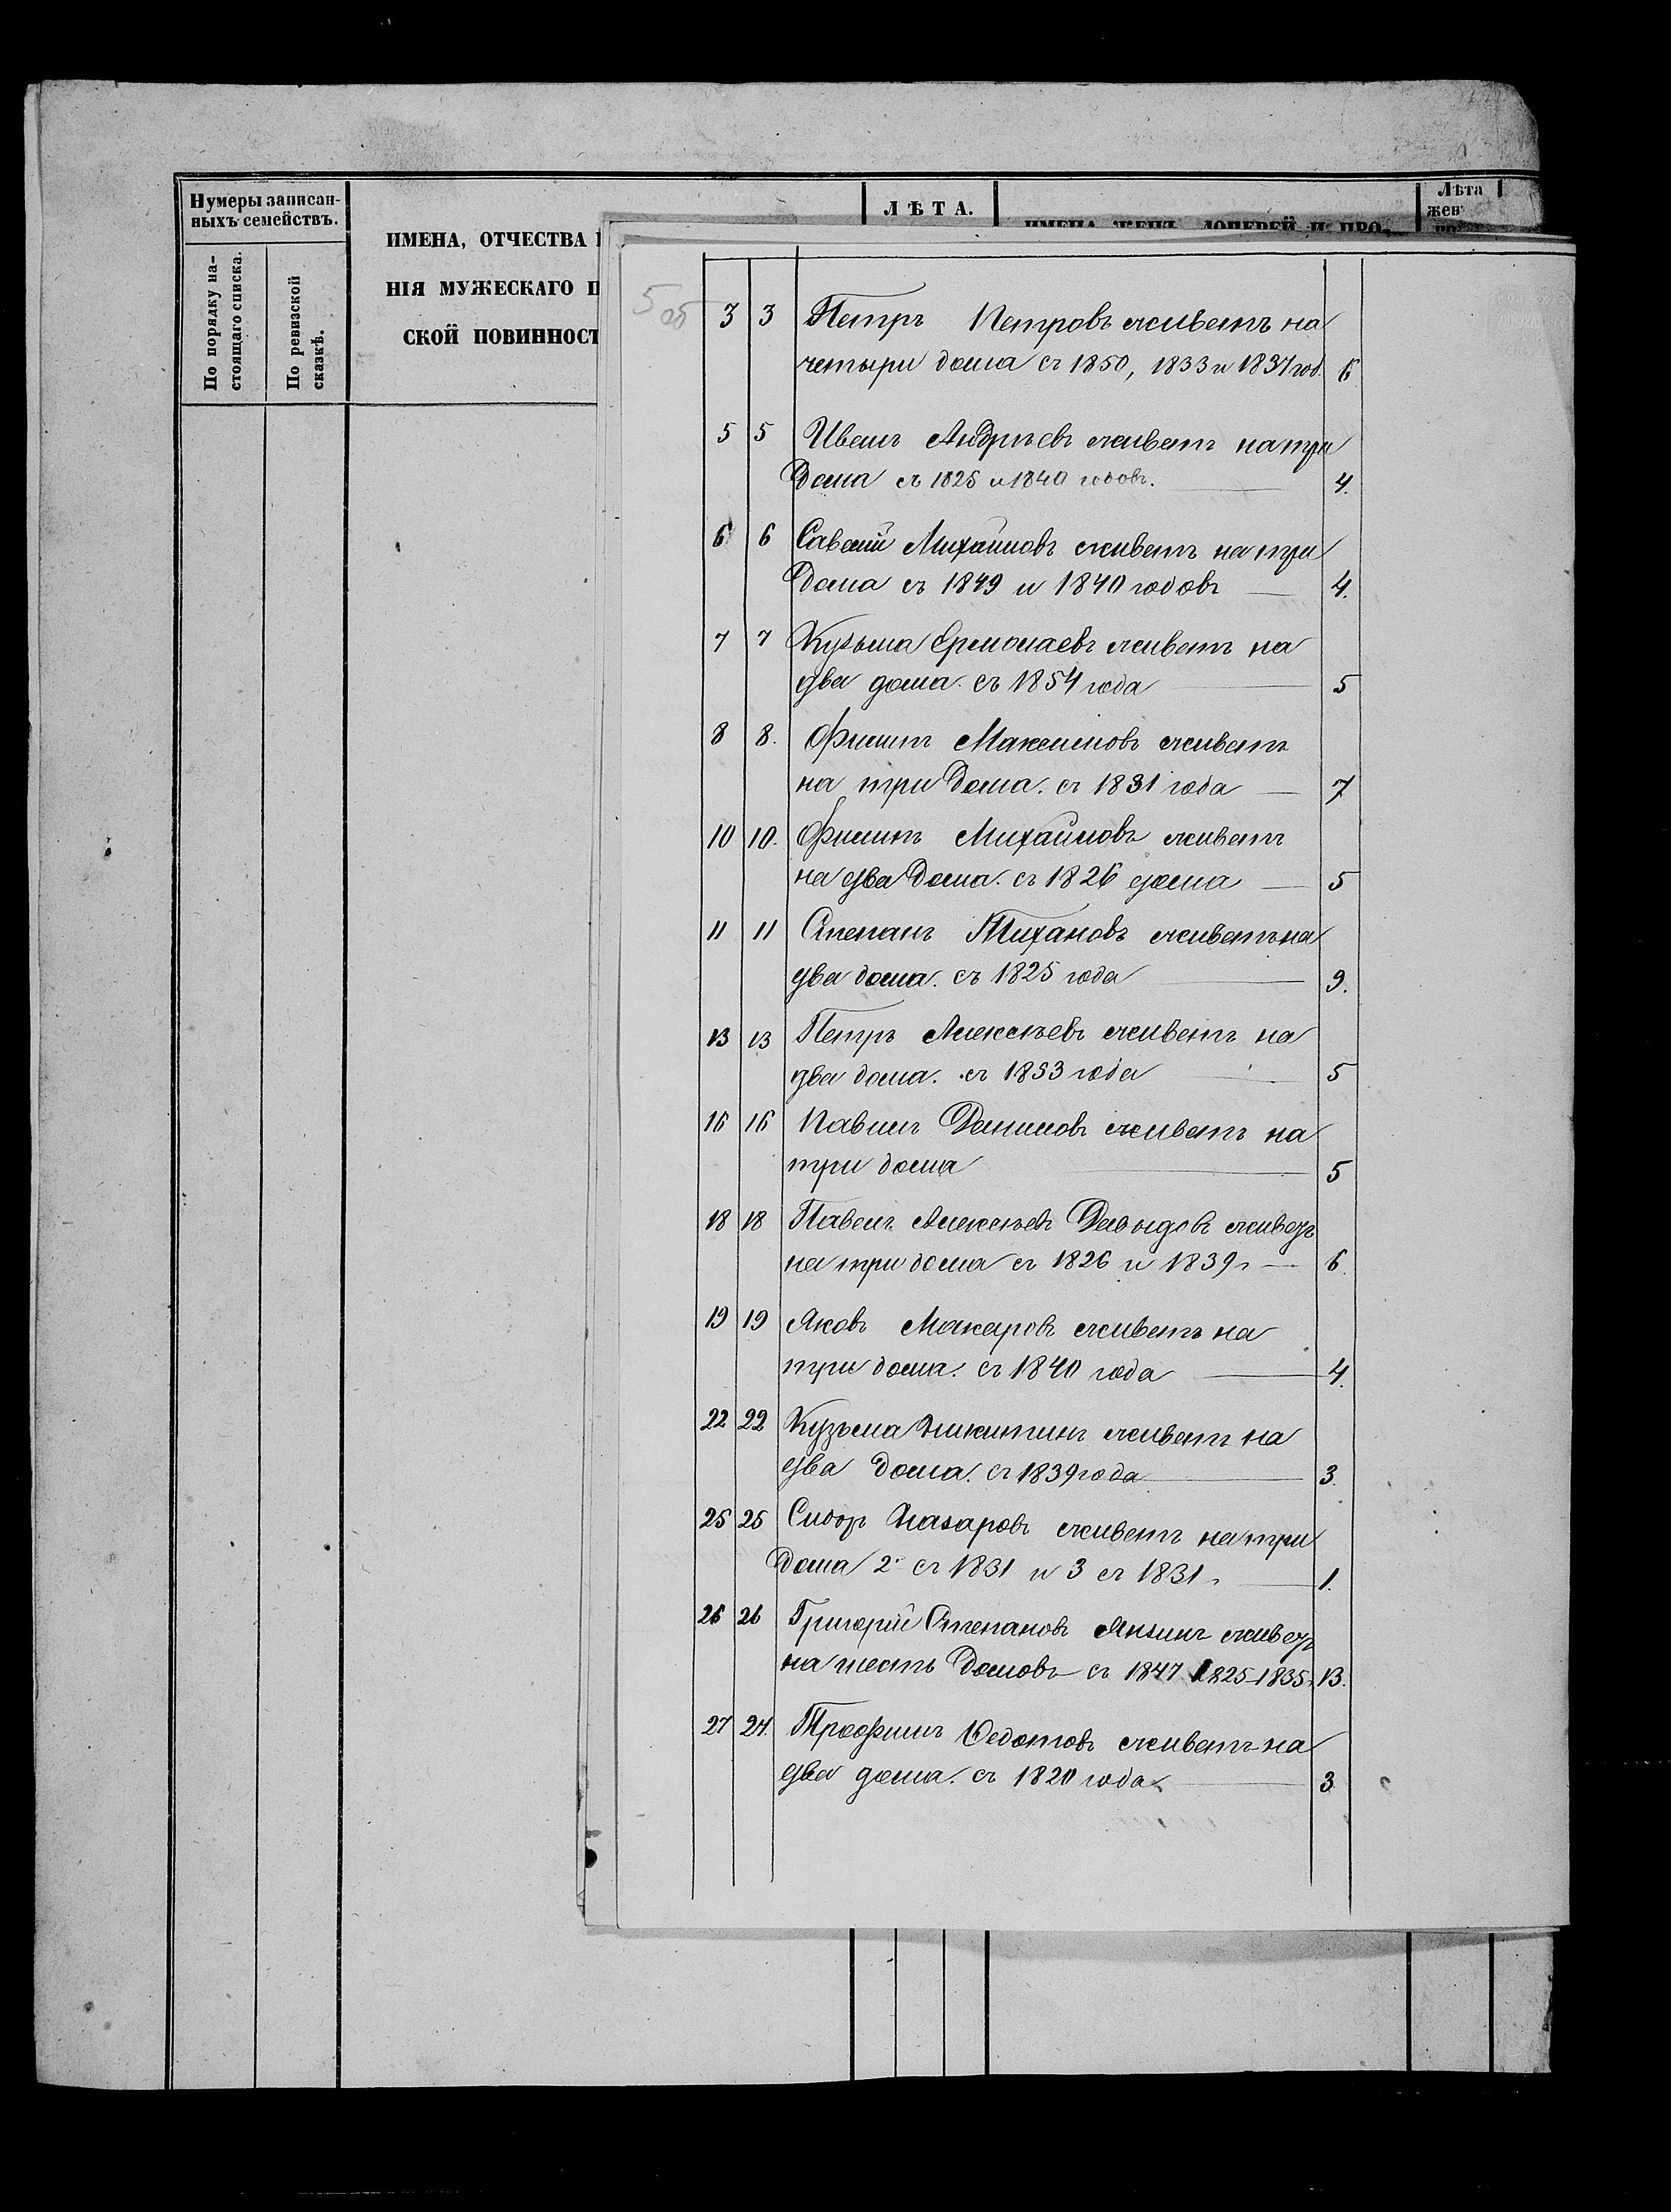 Нумеры записан-
ныхъ семействъ.
По порядку на-
стоящаго списка.
По ревизской
сказкѣ.
ИМЕНА, ОТЧЕСТВА
НІЯ МУЖЕСКАГО П
СКОЙ ПОВИННОСТ
ЛѢТА.
ИМЕНА ЖЕНЪ, ДОЧЕРЕЙ И ПРО-
Лѣта
жен
5 об
3 3 Петръ Петровъ живетъ на
четыри дома съ 1850, 1833 и 1837 год. 6
5 5 Иванъ Андрѣевъ живетъ на три
дома съ 1825 и 1840 годовъ. 4.
6 6 Савелій Михайловъ живетъ на три
дома съ 1849 и 1840 годовъ 4.
7 7 Кузьма Ермолаевъ живетъ на
два дома. съ 1854 года 5
8 8. Филипъ Максимовъ живетъ
на три дома. съ 1831 года 7
10 10. Филипъ Михайловъ живетъ
на два дома. съ 1826 дома 5
11 11 Степанъ Тихановъ живетъ на
два дома. съ 1825 года 9.
13 13 Петръ Алексѣевъ живетъ на
два дома. съ 1853 года 5
16 16 Павилъ Даниловъ живетъ на
три дома 5
18 18 Павелъ Алексѣевъ Давыдовъ живетъ
на три дома съ 1826 и 1839 г 6
19 19 Яковъ Макаровъ живетъ на
три дома. съ 1840 года 4.
22 22 Кузьма Никитинъ живетъ на
два дома. съ 1839 года 3.
25 25 Сидоръ Назаровъ живетъ на три
дома 2й съ 1831 и 3 съ 1831 г 1.
26 26 Григорій Степановъ живетъ
на шесть домовъ съ 1847 1825-1835 г 13.
27 27. Трофимъ Федотовъ живетъ на
два дома. съ 1820 года 3